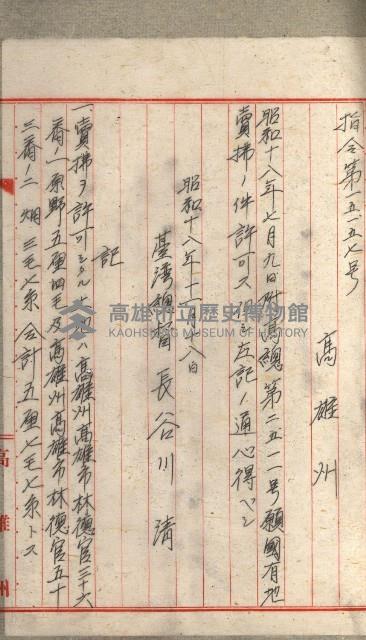 指令第一五一五七号
高雄州
昭和十八年七月九日附高總第二五一一号願國有地
賣拂ノ件許可ス 左記ノ通心得ベシ
昭和十八年十二月十八日
臺灣總督 長谷川清
記
一、賣拂ヲ許可シタル土地ハ高雄州高雄市林德官三十六
番ノ一原野五厘四毛及高雄州高雄市林德官五十
三番ノ二畑三毛七糸合計五厘七毛七糸トス
高雄州
高雄市立歷史博物館
KAOHSIUNG MUSEUM OF HISTORY